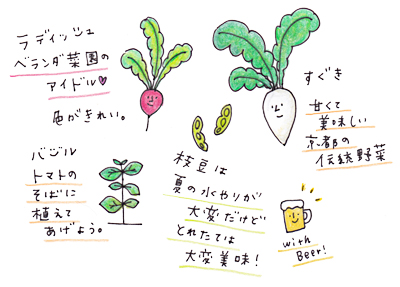 ラディッシュ
ベランダ菜園の
アイドル♥
色がきれい。
すぐき
甘くて
美味しい
京都の
伝統野菜
バジル
トマトの
そばに
植えて
あげよう。
枝豆は
夏の水やりが
大変だけど
とれたては
大変美味!
with
Beer!